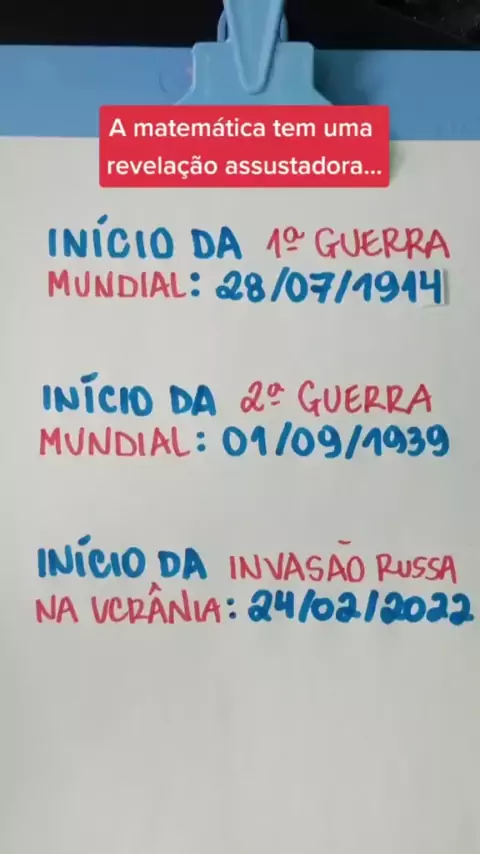 A matemática tem uma
revelação assustadora...
INÍCIO DA 1ª GUERRA
MUNDIAL: 28/07/1914
INÍCIO DA 2ª GUERRA
MUNDIAL: 01/09/1939
INÍCIO DA INVASÃO RUSSA
NA UCRÂNIA: 24/02/2022